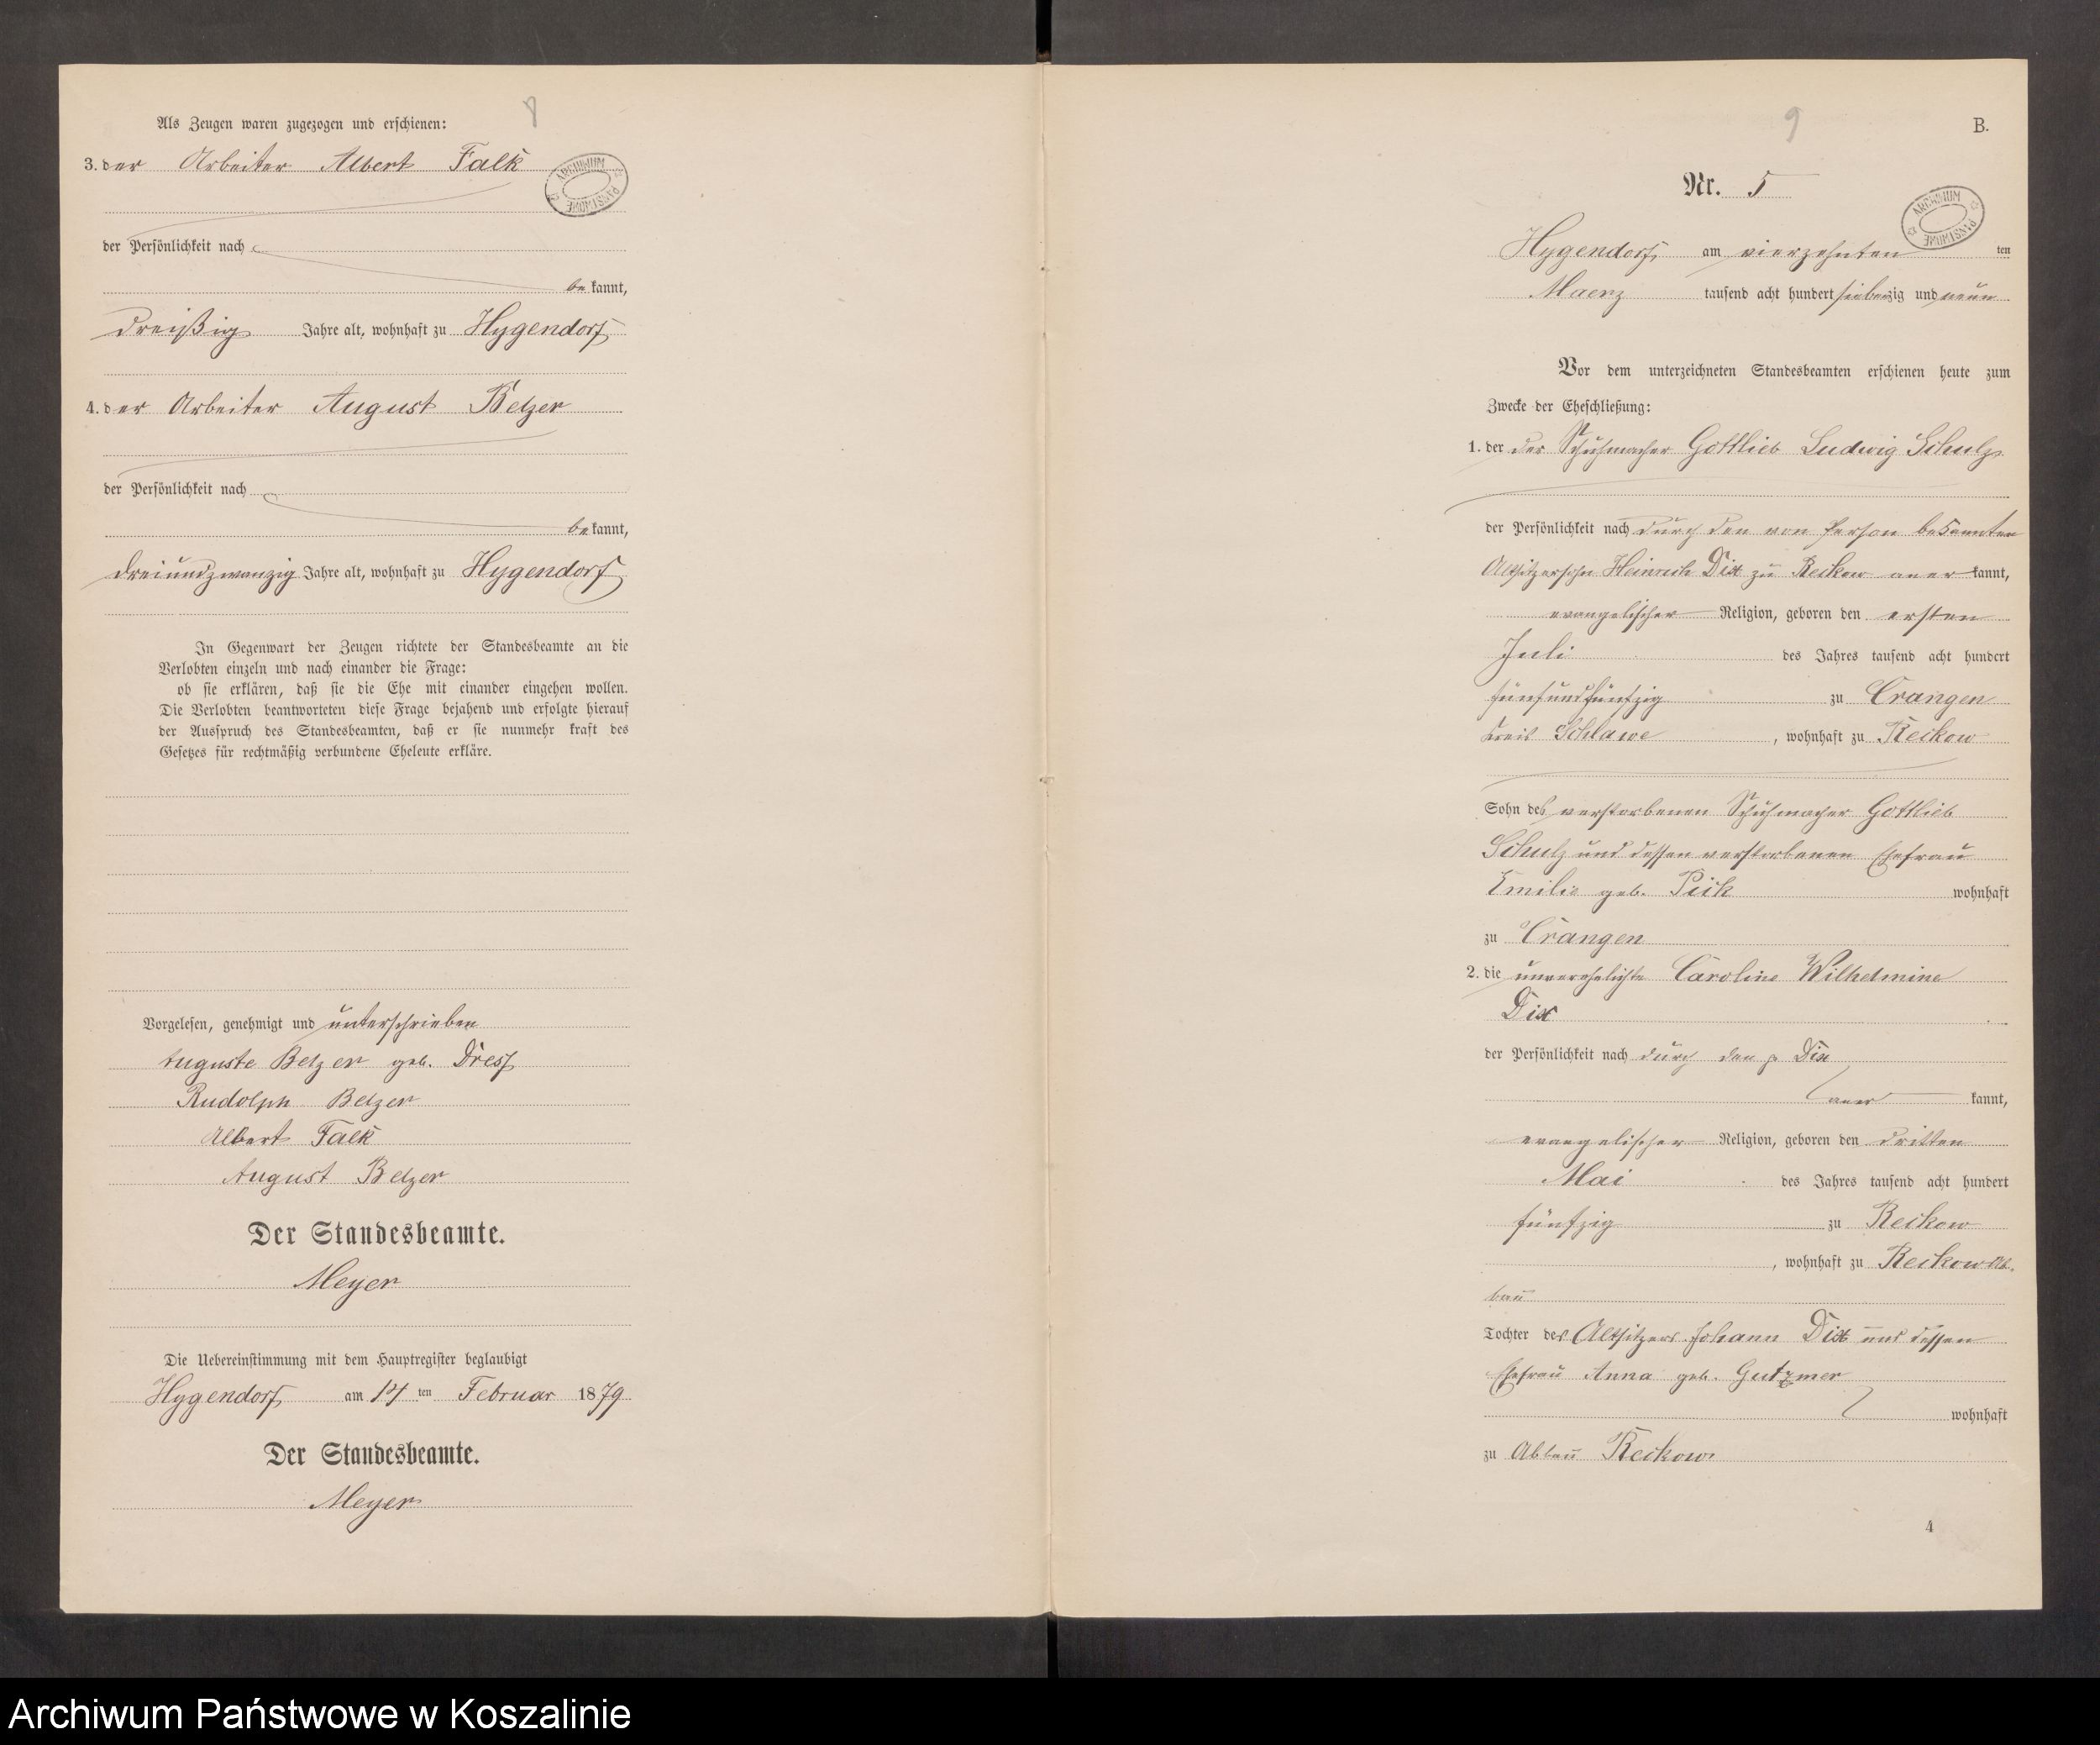 8
Als Zeugen waren zugezogen und erschienen:
3. der Arbeiter Albert Falk
ARCHIWUM PAŃSTWOWE
der Persönlichkeit nach
bekannt,
dreißig Jahre alt, wohnhaft zu Hygendorf
4. der Arbeiter August Belzer
der Persönlichkeit nach
bekannt,
dreiundzwanzig Jahre alt, wohnhaft zu Hygendorf
In Gegenwart der Zeugen richtete der Standesbeamte an die
Verlobten einzeln und nach einander die Frage:
ob sie erklären, daß sie die Ehe mit einander eingehen wollen.
Die Verlobten beantworteten diese Frage bejahend und erfolgte hierauf
der Ausspruch des Standesbeamten, daß er sie nunmehr kraft des
Gesetzes für rechtmäßig verbundene Eheleute erkläre.
Vorgelesen, genehmigt und unterschrieben
Auguste Belzer geb. Dresf
Rudolph Belzer
Albert Falk
August Belzer
Der Standesbeamte.
Meyer
Die Uebereinstimmung mit dem Hauptregister beglaubigt
Hygendorf am 14 ten Februar 1879
Der Standesbeamte.
Meyer
9
B.
Nr. 5
ARCHIWUM PAŃSTWOWE
Hygendorf am vierzehnten ten
Maerz tausend acht hundert siebenzig und neun
Vor dem unterzeichneten Standesbeamten erschienen heute zum
Zwecke der Eheschließung:
1. der der Schuhmacher Gottlieb Ludwig Schulz
der Persönlichkeit nach durch den von Person bekannten
Altsitzersohn Heinrich Dix zu Reckow anerkannt,
evangelischer Religion, geboren den ersten
Juli des Jahres tausend acht hundert
fünfundfünfzig zu Crangen
Kreis Schlawe, wohnhaft zu Reckow
Sohn des verstorbenen Schuhmacher Gottlieb
Schulz und dessen verstorbenen Ehefrau
Emilie geb. Pick wohnhaft
zu Crangen
2. die unverehelichte Caroline Wilhelmine
Dix
der Persönlichkeit nach durch den p Dix
anerkannt,
evangelischer Religion, geboren den dritten
Mai des Jahres tausend acht hundert
fünfzig zu Reckow
, wohnhaft zu Reckow Ab-
bau
Tochter des Altsitzers Johann Dix und dessen
Ehefrau Anna geb. Gutzmer
wohnhaft
zu Abbau Reckow
4
Archiwum Państwowe w Koszalinie